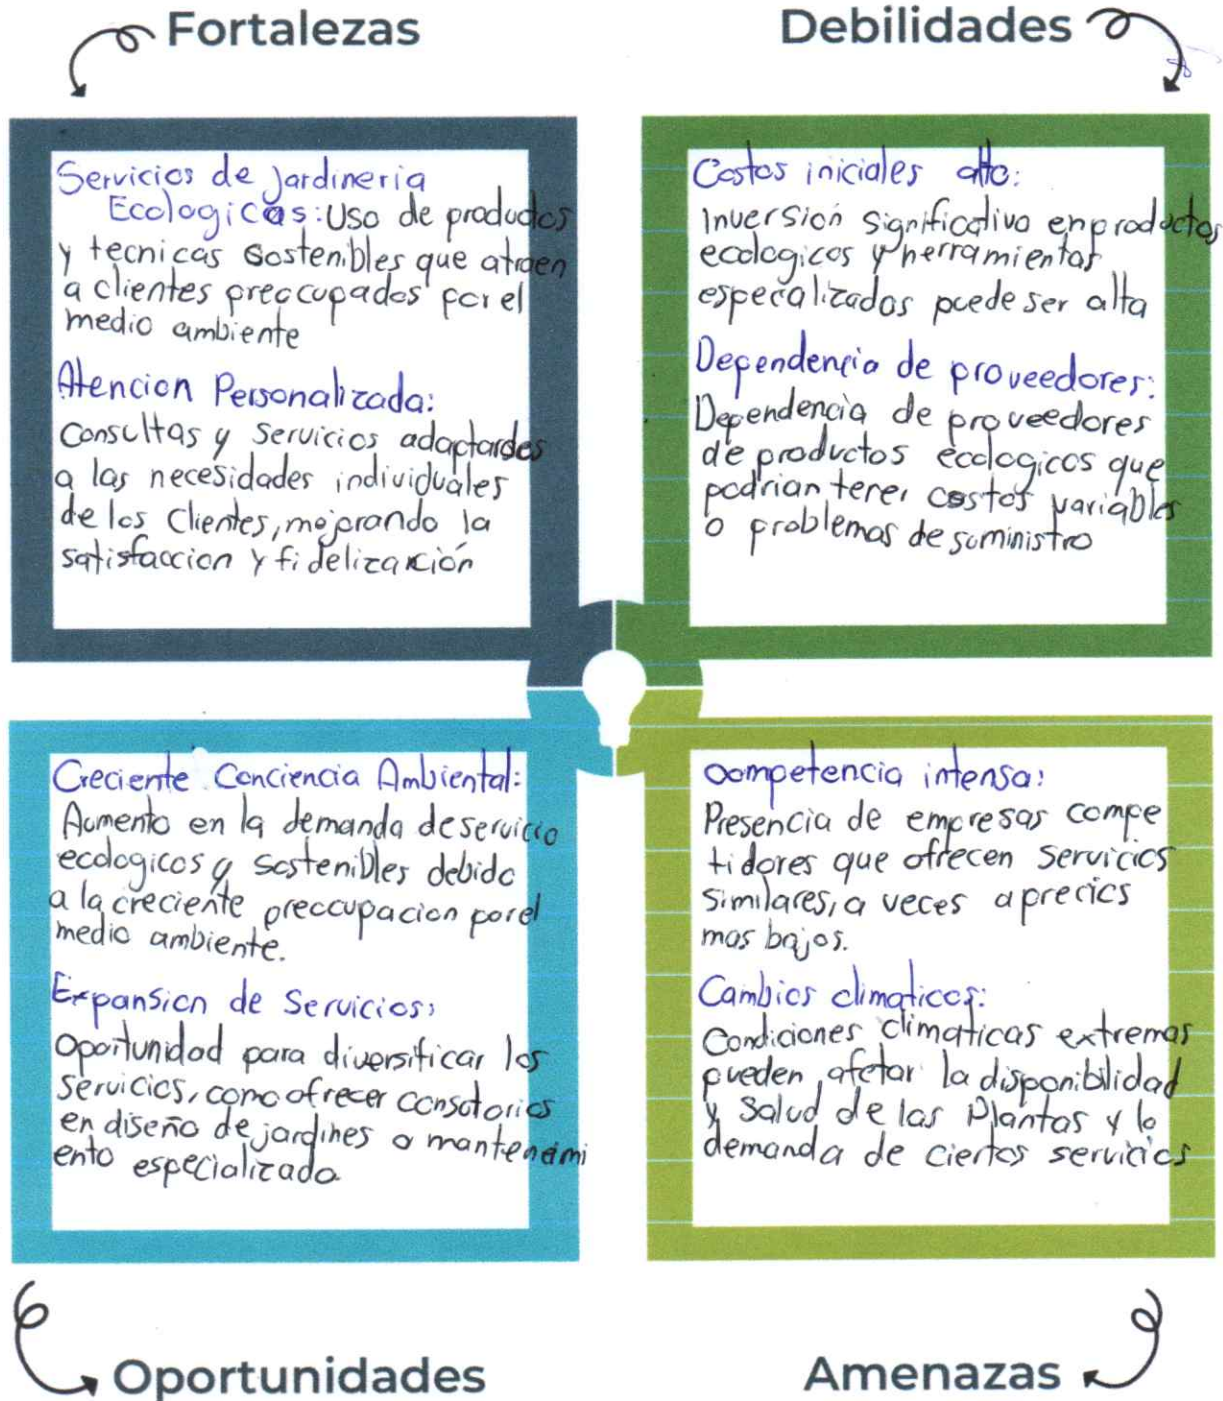 Fortalezas
Servicios de jardineria
Ecologicas: Uso de productos
y tecnicas sostenibles que atraen
a clientes preocupados por el
medio ambiente
Atencion Personalizada:
Consultas y servicios adaptardos
a las necesidades individuales
de los Clientes, mejorando la
satisfaccion y fidelización
Debilidades
Costos iniciales alto:
Inversión significativa en productos
ecologicos y herramientas
especalizados puede ser alta
Dependencia de proveedores:
Dependencia de proveedores
de productos ecologicos que
podrian tener costos variables
o problemas de suministro
Creciente Conciencia Ambiental:
Aumento en la demanda de servicio
ecologicos y sostenibles debido
a la creciente preocupacion por el
medio ambiente.
Expansion de Servicios:
Oportunidad para diversificar los
servicios, como ofrecer consotorios
en diseño de jardines o mantenami
ento especializado
Oportunidades
competencia intensa:
Presencia de empresas compe
tidores que ofrecen servicios
similares, a veces a precios
mas bajos.
Cambios climaticos:
Condiciones climaticas extremas
pueden afetar la disponibilidad
y salud de las Plantas y la
demanda de ciertos servicios
Amenazas